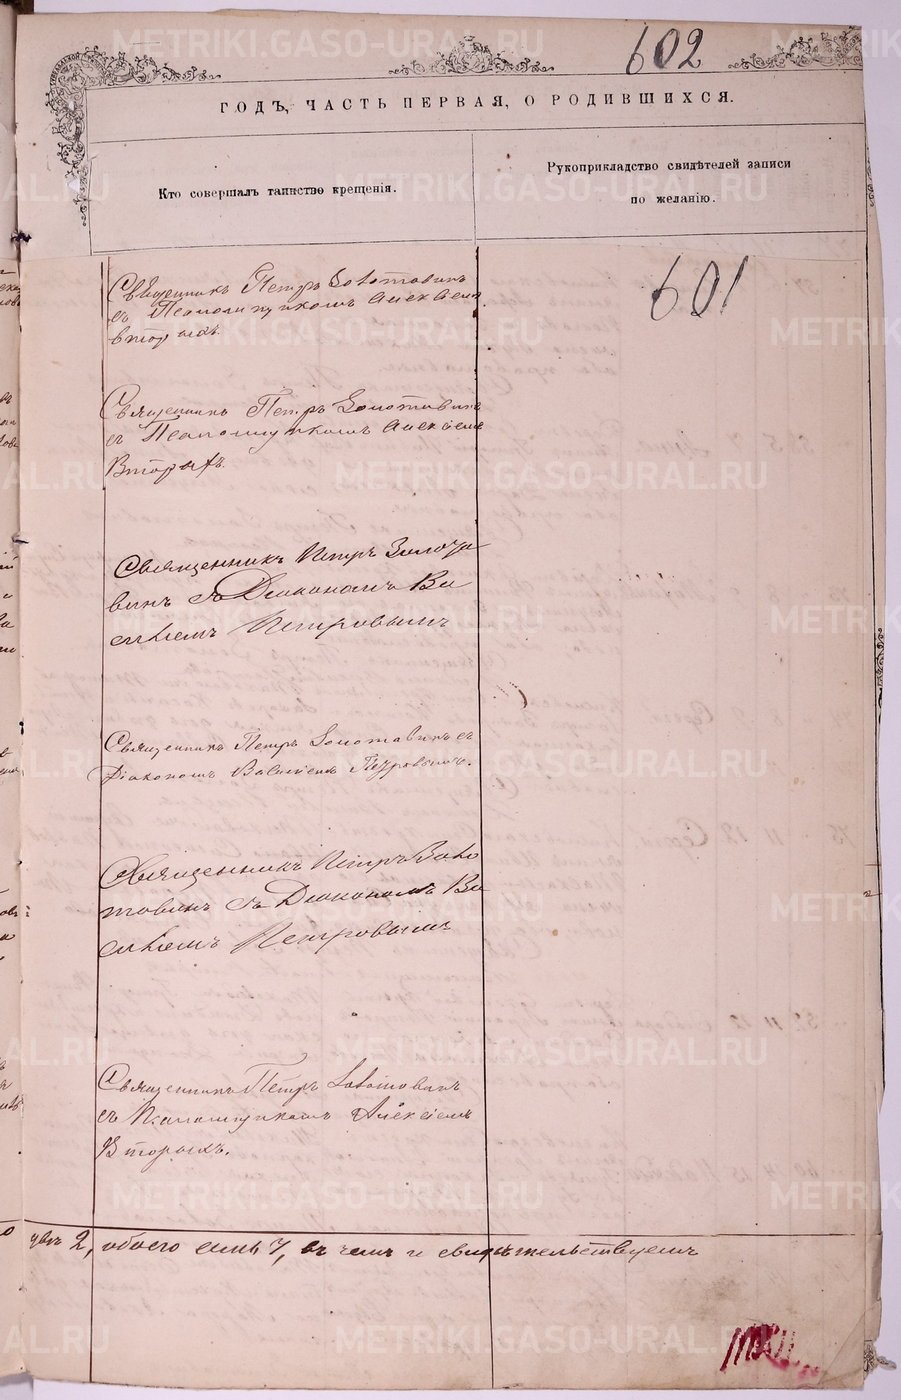 602
ГОДЪ, ЧАСТЬ ПЕРВАЯ, О РОДИВШИХСЯ.
Кто совершалъ таинство крещенія.
Рукоприкладство свидѣтелей записи
по желанію.
601
Священникъ Петръ Золотавинъ
съ Псаломщикомъ Алексѣемъ
Вторыхъ.
Священникъ Петръ Золотавинъ
съ Псаломщикомъ Алексѣемъ
Вторыхъ.
Священникъ Петръ Золота
винъ съ Діакономъ Ва
силіемъ Петровымъ
Священникъ Петръ Золотавинъ съ
Діакономъ Василіемъ Петровымъ.
Священникъ Петръ Золо
тавинъ съ Діакономъ Ва
силіемъ Петровымъ
Священникъ Петръ Золотавинъ
съ Псаломщикомъ Алексіемъ
Вторыхъ.
2, обоего 7, въ чемъ и свидѣтельствуемъ
METRIKI.GASO-URAL.RU